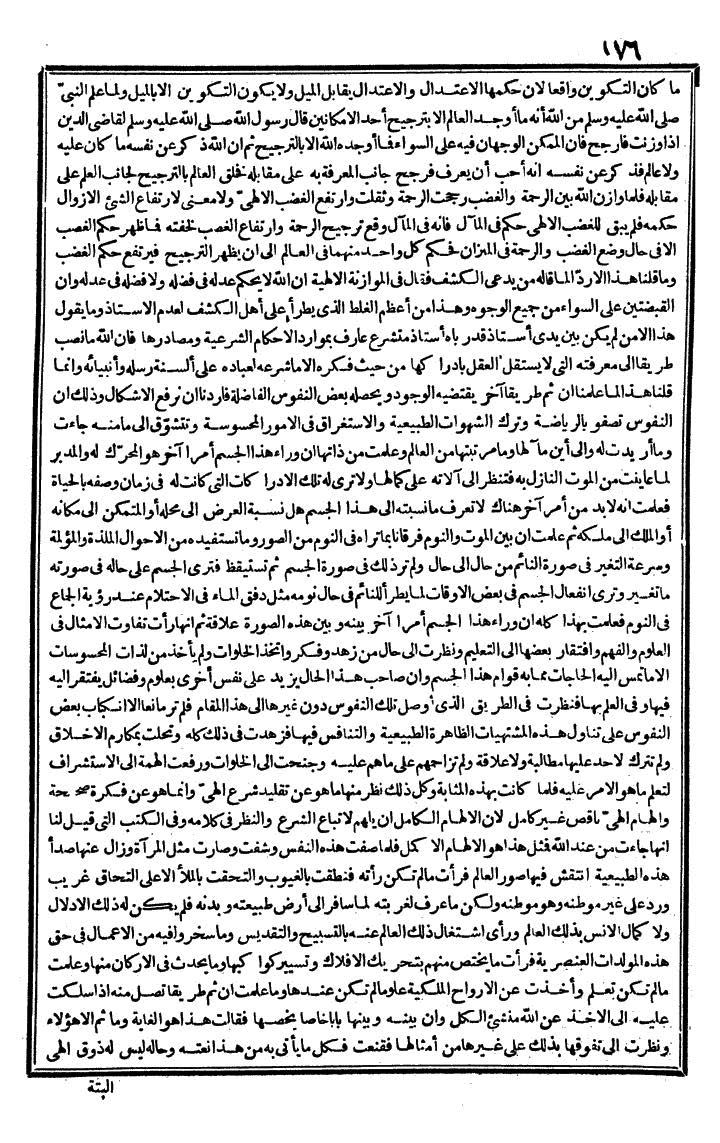 ١٧٦
ما كان التكوين واقعا لان حكمها الاعتدال والاعتدال يقابل الميل ولا يكون التكوين الا بالميل ولما علم النبيّ
صلى الله عليه وسلم من الله أنه ما أوجد العالم الا بترجيح أحد الامكانين قال رسول الله صلى الله عليه وسلم لقاضي الدين
اذا وزنت فارجح فان الممكن الوجهان فيه على السواء فما أوجده الله الا بالترجيح ثم ان الله ذكر عن نفسه ما كان عليه
ولا عالم فذكر عن نفسه انه أحب أن يعرف فرجح جانب المعرفة به على مقابله فخلق العالم بالترجيح لجانب العلم على
مقابله فلما وازن الله بين الرحمة والغضب رجحت الرحمة وثقلت وارتفع الغضب الالهيّ ولا معنى لارتفاع الشئ الا زوال
حكمه فلم يبق للغضب الالهي حكم في المآل فانه في المآل وقع ترجيح الرحمة وارتفاع الغصب لخفته فما ظهر حكم الغصب
الا في حال وضع الغضب والرحمة في الميزان فحكم كل واحد منهما في العالم الى ان يظهر الترجيح فيرتفع حكم الغضب
وما قلنا هذا الا ردّا لما قاله من يدعى الكشف فقال في الموازنة الالهية ان الله لا يحكم عدله في فضله ولا فضله في عدله وان
القبضتين على السواء من جميع الوجوه وهذا من أعظم الغلط الذي يطرأ على أهل الكشف لعدم الاستاذ وما يقول
هذا الا من لم يكن بين يدى أستاذ قد رباه أستاذ متشرع عارف بموارد الاحكام الشرعية ومصادرها فان الله ما نصب
طريقا الى معرفته التي لا يستقل العقل بادراكها من حيث فكره الا ما شرعه لعباده على ألسنة رسله وأنبيائه وانما
قلنا هذا لما علمنا ان ثم طريقا آخر يقتضيه الوجود ويحصله بعض النفوس الفاضلة فاردنا ان نرفع الاشكال وذلك ان
النفوس تصفو بالرياضة وترك الشهوات الطبيعية والاستغراق في الامور المحسوسة وتتشوّق الى ما منه جاءت
وما أريدت له والى أين مآلها وما مرتبتها من العالم وعلمت من ذاتها ان وراء هذا الجسم أمرا آخر هو المحرّك له والمدبر
لما عاينت من الموت النازل به فتنظر الى آلاته على كمالها ولا ترى له تلك الادراكات التي كانت له في زمان وصفه بالحياة
فعلمت انه لا بد من أمر آخر هناك لا تعرف ما نسبته الى هذا الجسم هل نسبة العرض الى محله أو المتمكن الى مكانه
أو الملك الى ملكه ثم علمت ان بين الموت والنوم فرقانا بما تراه في النوم من الصور وما تستفيده من الاحوال الملذة والمؤلمة
وسرعة التغير في صورة النائم من حال الى حال ولم تر ذلك في صورة الجسم ثم تستيقظ فترى الجسم على حاله في صورته
ما تغير وترى انفعال الجسم في بعض الاوقات لما يطرأ للنائم في حال نومه مثل دفق الماء في الاحتلام عند رؤية الجماع
في النوم فعلمت بهذا كله ان وراء هذا الجسم أمرا آخر بينه وبين هذه الصورة علاقة ثم انها رأت تفاوت الامثال في
العلوم والفهم وافتقار بعضها الى التعليم ونظرت الى حال من زهد وفكر واتخذ الخلوات ولم يأخذ من لذات المحسوسات
الا ما تمس اليه الحاجات مما به قوام هذا الجسم وان صاحب هذا الحال يزيد على نفس أخرى بعلوم وفضائل يفتقر اليه
فيها وفي العلم بها فنظرت في الطريق الذي أوصل تلك النفوس دون غيرها الى هذا المقام فلم تر مانعا الا انكباب بعض
النفوس على تناول هذه المشتهيات الظاهرة الطبيعية والتنافس فيها فزهدت في ذلك كله وتحلت بمكارم الاخلاق
ولم تترك لاحد عليها مطالبة ولا علاقة ولم تزاحمهم على ما هم عليه وجنحت الى الخلوات ورفعت الهمة الى الاستشراف
لتعلم ما هو الامر عليه فلما كانت بهذه المثابة وكل ذلك نظر منها ما هو عن تقليد شرع الهيّ وانما هو عن فكرة صحيحة
والهام الهيّ ناقص غير كامل لان الالهام الكامل ان يلهم لاتباع الشرع والنظر في كلامه وفي الكتب التي قيل لنا
انها جاءت من عند الله فمثل هذا هو الالهام الاكمل فلما صفت هذه النفس وشفت وصارت مثل المرآة وزال عنها صدأ
هذه الطبيعية انتقش فيها صور العالم فرأت ما لم تكن رأته فنطقت بالغيوب والتحقت بالملأ الاعلى التحاق غريب
ورد على غير موطنه وهو موطنه ولكن ما عرف لغربته لما سافر الى أرض طبيعته وبدنه فلم يكن له ذلك الادلال
ولا كمال الانس بذلك العالم ورأى اشتغال ذلك العالم عنه بالتسبيح والتقديس وما سخروا فيه من الاعمال في حق
هذه المولدات العنصرية فرأت ما يختص منهم بتحريك الافلاك وتسيير كواكبها وما يحدث في الاركان منها وعلمت
ما لم تكن تعلم وأخذت عن الارواح الملكية علوما لم تكن عندها وما علمت ان ثم طريقا تصل منه اذا سلكت
عليه الى الاخذ عن الله منشئ الكل وان بينه وبينها بابا خاصا يخصها فقالت هذا هو الغاية وما ثم الا هؤلاء
ونظرت الى تفوقها بذلك على غيرها من أمثالها فقنعت فكل ما يأتى به من هذا نعته وحاله ليس له ذوق الهى
البتة